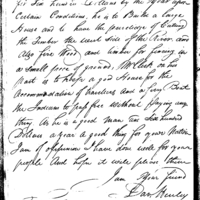 for Six hundred Dollars by the year upon
Certain Conditions, he is to Build a large
House and to have the priviledge of Cutting
the Timber this west side of the River and
Also fire Wood and timber for fencing up
a Small piece of ground. Mr Clark on his
part is to keep a good House for the
Accommodation of travellers and a ferry Boat
the Indians to pass free without paying any
thing. As he is a good man six hundred
Dollars a year a good thing for your Nation
I am of opinion I have done well for your
people and hope it will please them
I am Your friend